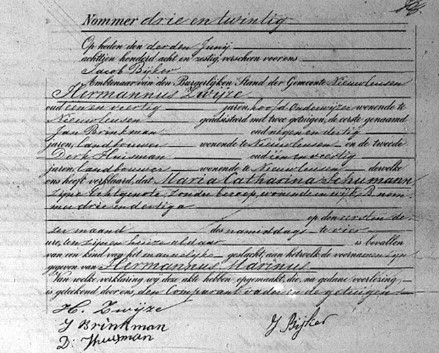 Nommer drie en twintig
Op heden den derden Junij
achttien honderd acht en zestig, verscheen voor ons
Jacob Bijker
Ambtenaar van den Burgerlijken Stand der Gemeente Nieuwleusen
Hermannus Zwijze
oud een en veertig jaren, hoofd Onderwijzer wonende te
Nieuwleusen geadsisteerd met twee getuigen, de eerste genaamd
Jan Brinkman oud negen en dertig
jaren, landbouwer wonende te Nieuwleusen en de tweede
Derk Huisman oud een en veertig
jaren, landbouwer wonende te Nieuwleusen dewelke
ons heeft verklaard, dat Maria Catharina Schumann
zijne Echtgenote Zonder beroep, wonende in wijk B nom
mer drie en dertig a
op den eersten de
zer maand des namiddags te vier
ure, ten zijnen huize aldaar is bevallen
van een kind van het mannelijke geslacht, aan hetwelk de voornamen zijn
gegeven van Hermannus Marinus
Van welke verklaring wij deze akte hebben opgemaakt, die, na gedane voorlezing,
is geteekend door ons, den Comparant vader en de getuigen
H. Zwijze
J Brinkman
D. Huisman
J Bijker